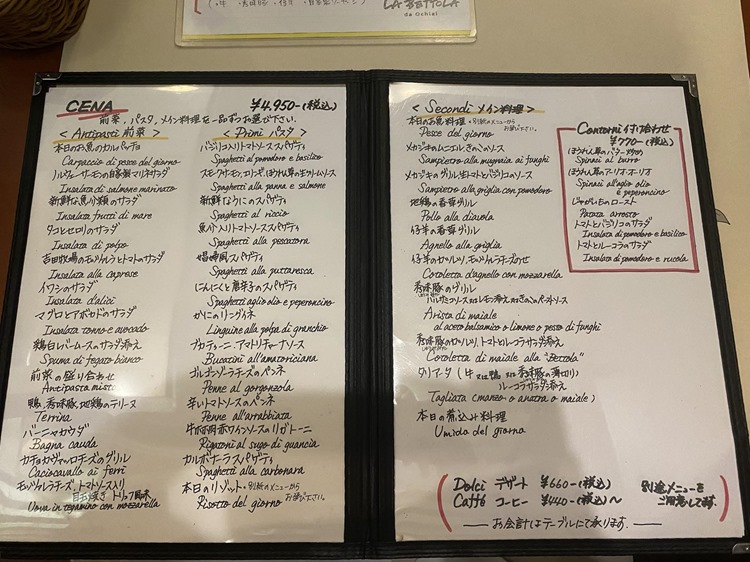 LA BETTOLA
da Ochiai
CENA ¥4.950-(税込)
前菜、パスタ、メイン料理を一品ずつお選び下さい。
<Antipasti 前菜>
本日のお魚のカルパッチョ
Carpaccio di pesce del giorno
ノルウェーサーモンの自家製マリネサラダ
Insalata di salmone marinato
新鮮な魚介類のサラダ
Insalata frutti di mare
タコとセロリのサラダ
Insalata di polpo
吉田牧場のモッツァレラとトマトのサラダ
Insalata alla caprese
イワシのサラダ
Insalata d'alici
マグロとアボカドのサラダ
Insalata tonno e avocado
鶏白レバームースのサラダ添え
Spuma di fegato bianco
前菜の盛り合わせ
Antipasta misto
鴨、秀味豚、地鶏のテリーヌ
Terrina
バーニャカウダ
Bagna cauda
カチョカヴァッロチーズのグリル
Caciocavallo ai ferri
モッツァレラチーズ、トマトソース入り
目玉焼き トリュフ風味
Uova in tegamino con mozzarella
<Primi パスタ>
バジリコ入りトマトソーススパゲティ
Spaghetti al pomodoro e basilico
スモークサーモン、ほうれん草の生クリームソース
Spaghetti alla panna e salmone
新鮮なうにのスパゲティ
Spaghetti al riccio
魚介入りトマトソーススパゲティ
Spaghetti alla pescatora
娼婦風スパゲティ
Spaghetti alla puttaresca
にんにくと唐辛子のスパゲティ
Spaghetti aglio olio e peperoncino
かにのリングイネ
Linguine alla polpa di granchio
ブカティーニ・アマトリチャーナソース
Bucatini all'amatoriciana
ゴルゴンゾーラチーズのペンネ
Penne al gorgonzola
辛いトマトソースのペンネ
Penne all'arrabbiata
牛ホホ肉赤ワインソースのリガトーニ
Rigatoni al sugo di guancia
カルボナーラスパゲティ
Spaghetti alla carbonara
本日のリゾット・別紙のメニューからお選び下さい。
Risotto del giorno
<Secondi メイン料理>
本日のお魚料理・別紙のメニューからお選び下さい。
Pesce del giorno
メカジキのムニエルきのこソース
Sampietro alla mugnaia ai funghi
メカジキのグリル生トマトとバジリコのソース
Sampietro alla griglia con pomodoro
地鶏の香草グリル
Pollo alla diavola
仔羊の香草グリル
Agnello alla griglia
仔羊のカツレツ、モッツァレラチーズのせ
Cotoletta d'agnello con mozzarella
秀味豚のグリル
バルサミコソース又はレモン添え又はきのこペーストソース
Arista di maiale
al aceto balsamico o limone o pesto di funghi
秀味豚のカツレツ、トマトとルーコラサラダ添え
Cotoletta di maiale alla "Bettola"
タリアータ (牛 又は 鴨 又は 秀味豚の薄切り)
ルーコラサラダ添え
Tagliata (manzo o anatra o maiale)
本日の煮込み料理
Umido del giorno
Contorni 付け合わせ
¥770-(税込)
ほうれん草のバター炒め
Spinaci al burro
ほうれん草のアーリオ・オーリオ
Spinaci all'aglio olio
e peperoncino
じゃがいものロースト
Patata arrosto
トマトとバジリコのサラダ
Insalata di pomodoro e basilico
トマトとルーコラのサラダ
Insalata di pomodoro e rucola
Dolci デザート ¥660-(税込)
Caffé コーヒー ¥440-(税込)〜
別途メニューを
ご用意してます。
お会計はテーブルにて承ります。